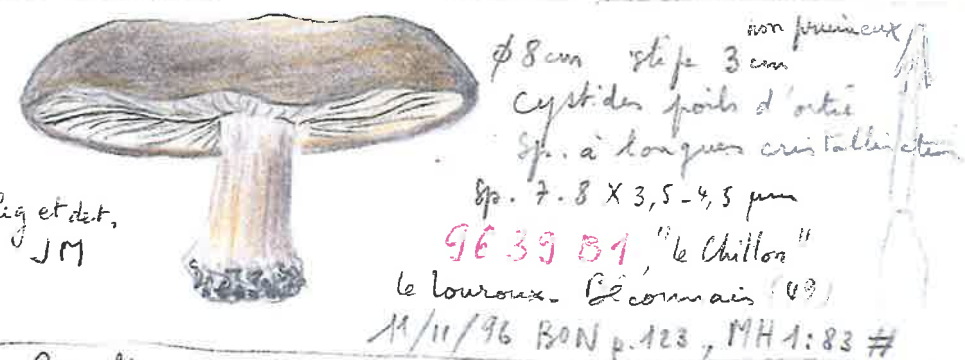 non pruineux
φ 8 cm stipe 3 cm
cystides poils d'ortie
Sp. à longues cristallisation
Sp. 7-8 X 3,5-4,5 µm
Leg et det.
JM
9639B1, "le Chillon"
le Louroux-Béconnais (49)
11/11/96 BON p.123, MH 1:83 #